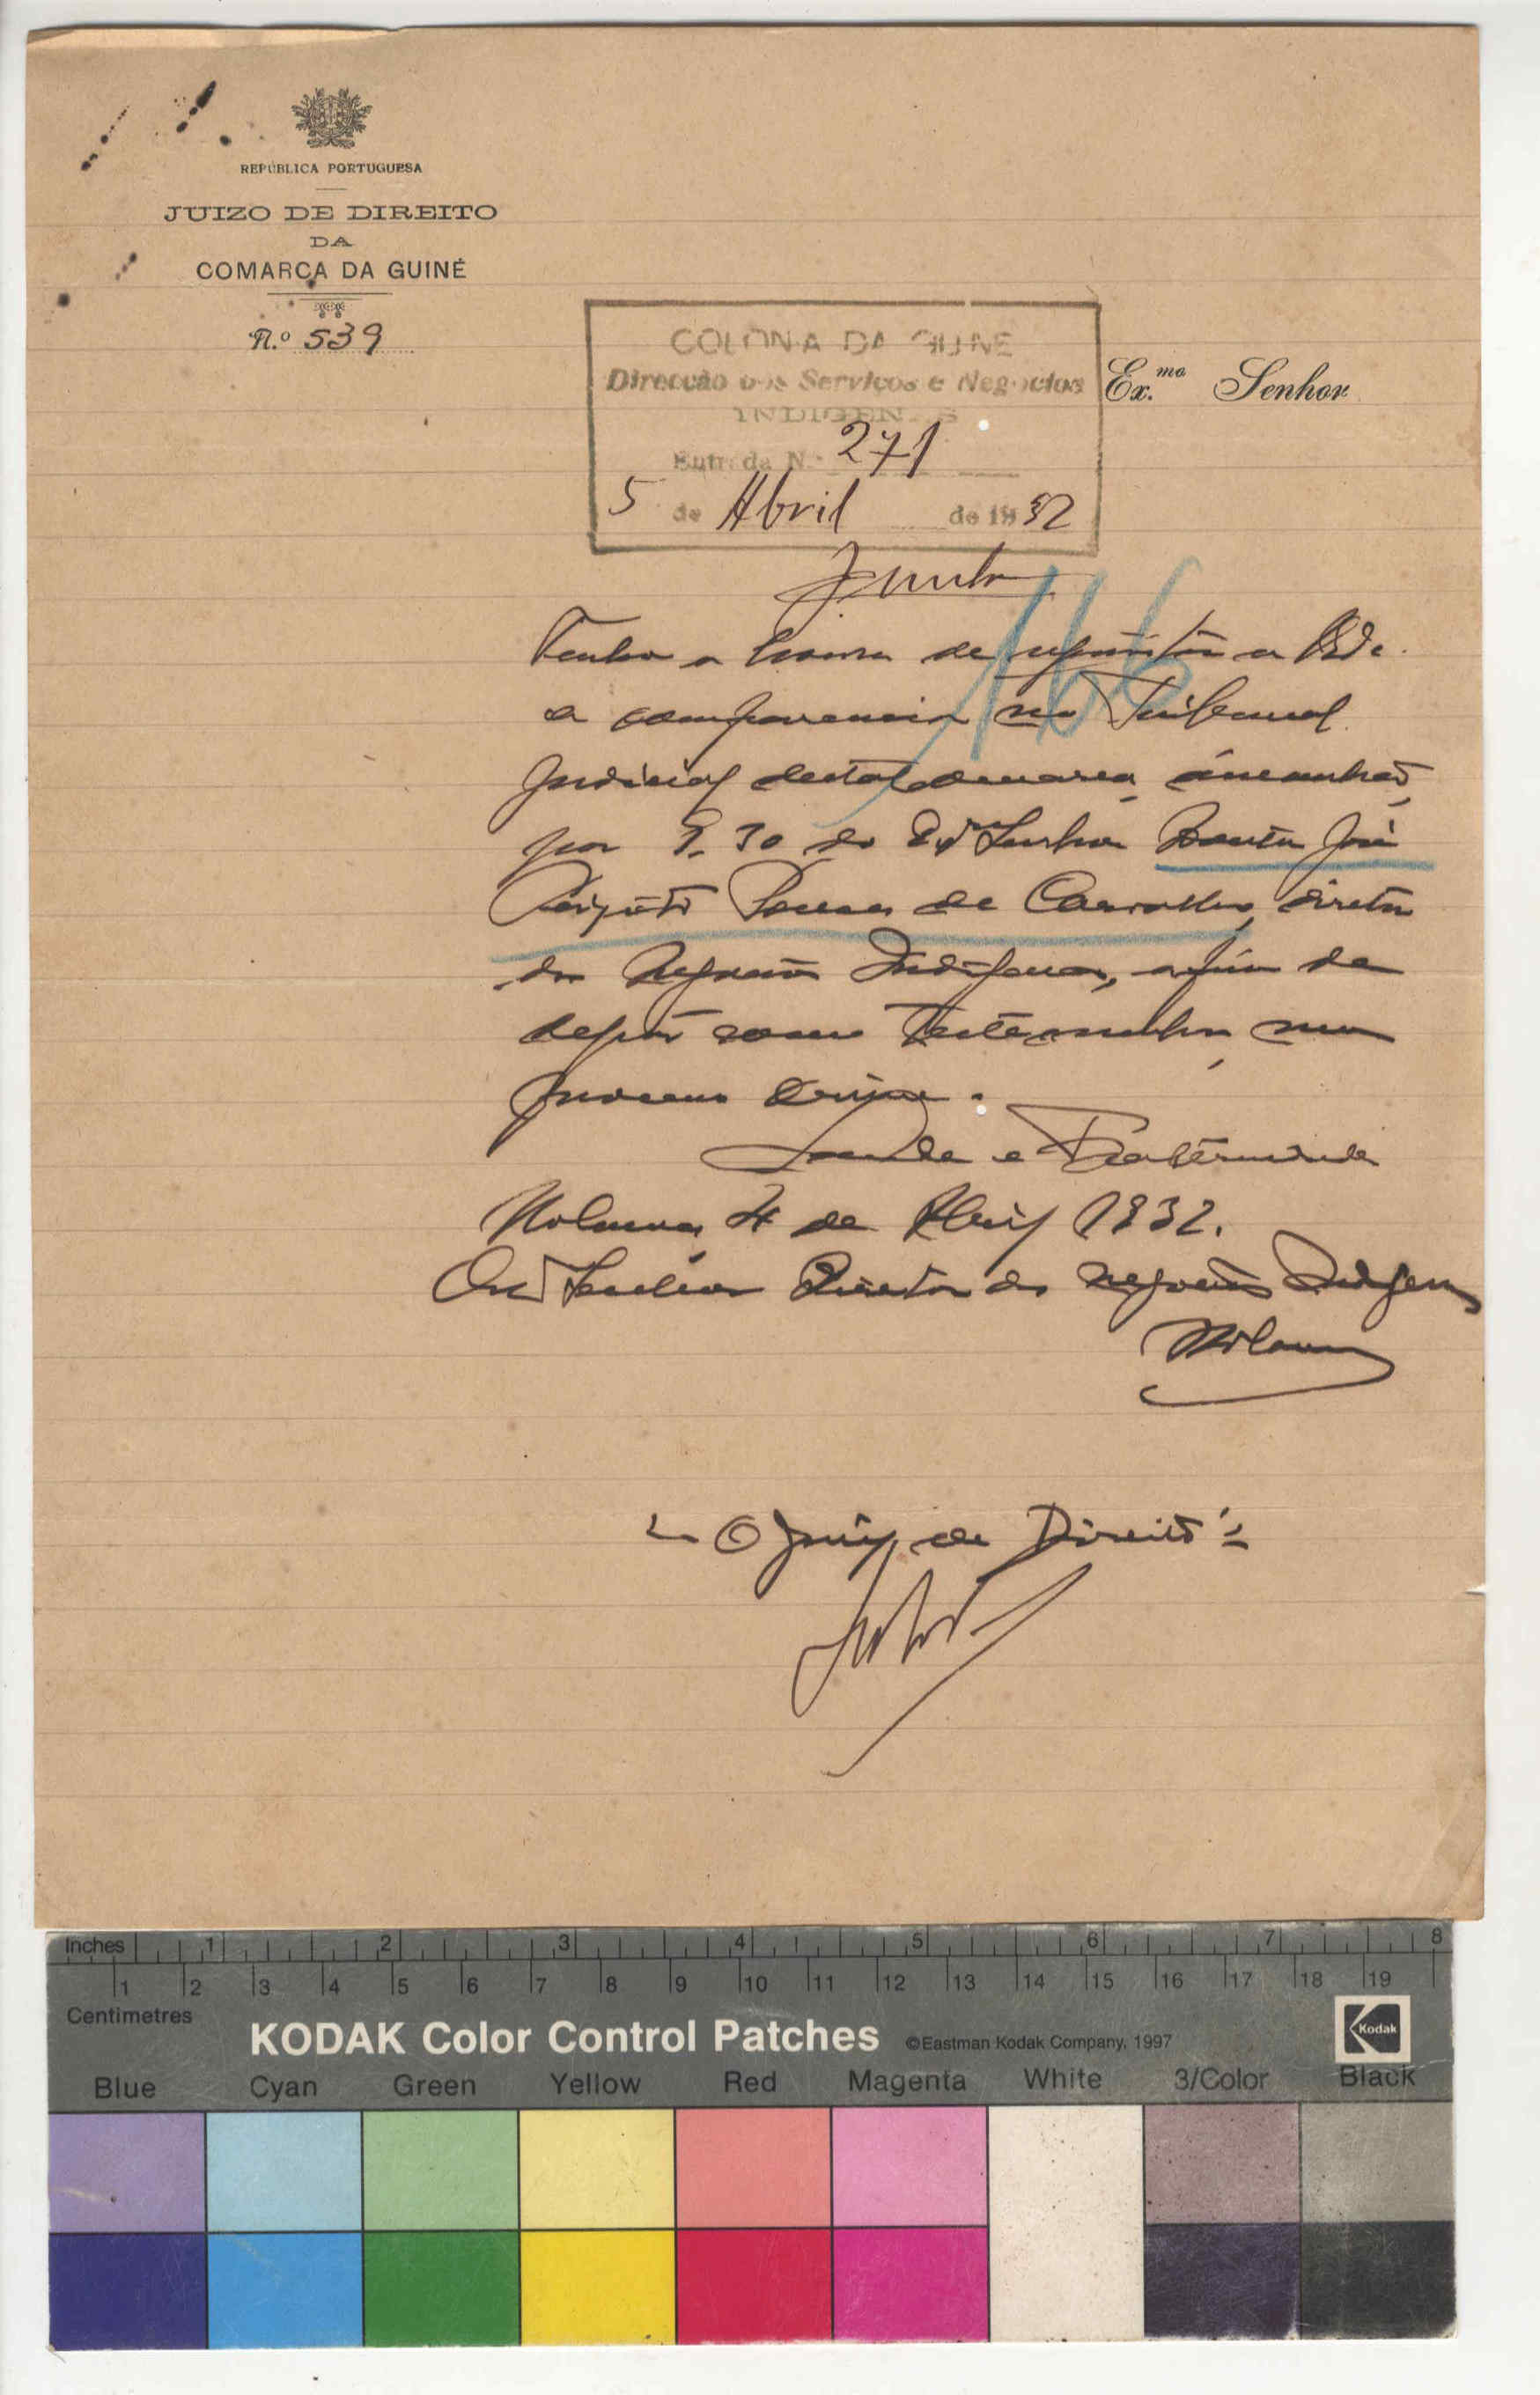 REPÚBLICA PORTUGUESA
JUIZO DE DIREITO
DA
COMARCA DA GUINÉ
N.º 539
COLONIA DA GUINE
Direcção dos Serviços e Negocios
INDIGENAS
Entrada N.º 271
5 de Abril de 1932
Ex.mo Senhor
Junte
166
Tenho a honra de requisitar a V. Ex.
a comparencia no Tribunal
Judicial desta Comarca, ámanhã,
por 9.30 do Ex.mo Senhor José
de Carvalho, diretor
dos Negocios Indigenas, afim de
depôr como testemunha num
processo crime.
Saude e Fraternidade
Bolama, 4 de Abril 1932.
Senhor Director dos Negocios Indigenas
Bolama
O Juiz de Direito
Inches 1 2 3 4 5 6 7 8
1 2 3 4 5 6 7 8 9 10 11 12 13 14 15 16 17 18 19
Centimetres
KODAK Color Control Patches ©Eastman Kodak Company, 1997 Kodak
Blue Cyan Green Yellow Red Magenta White 3/Color Black